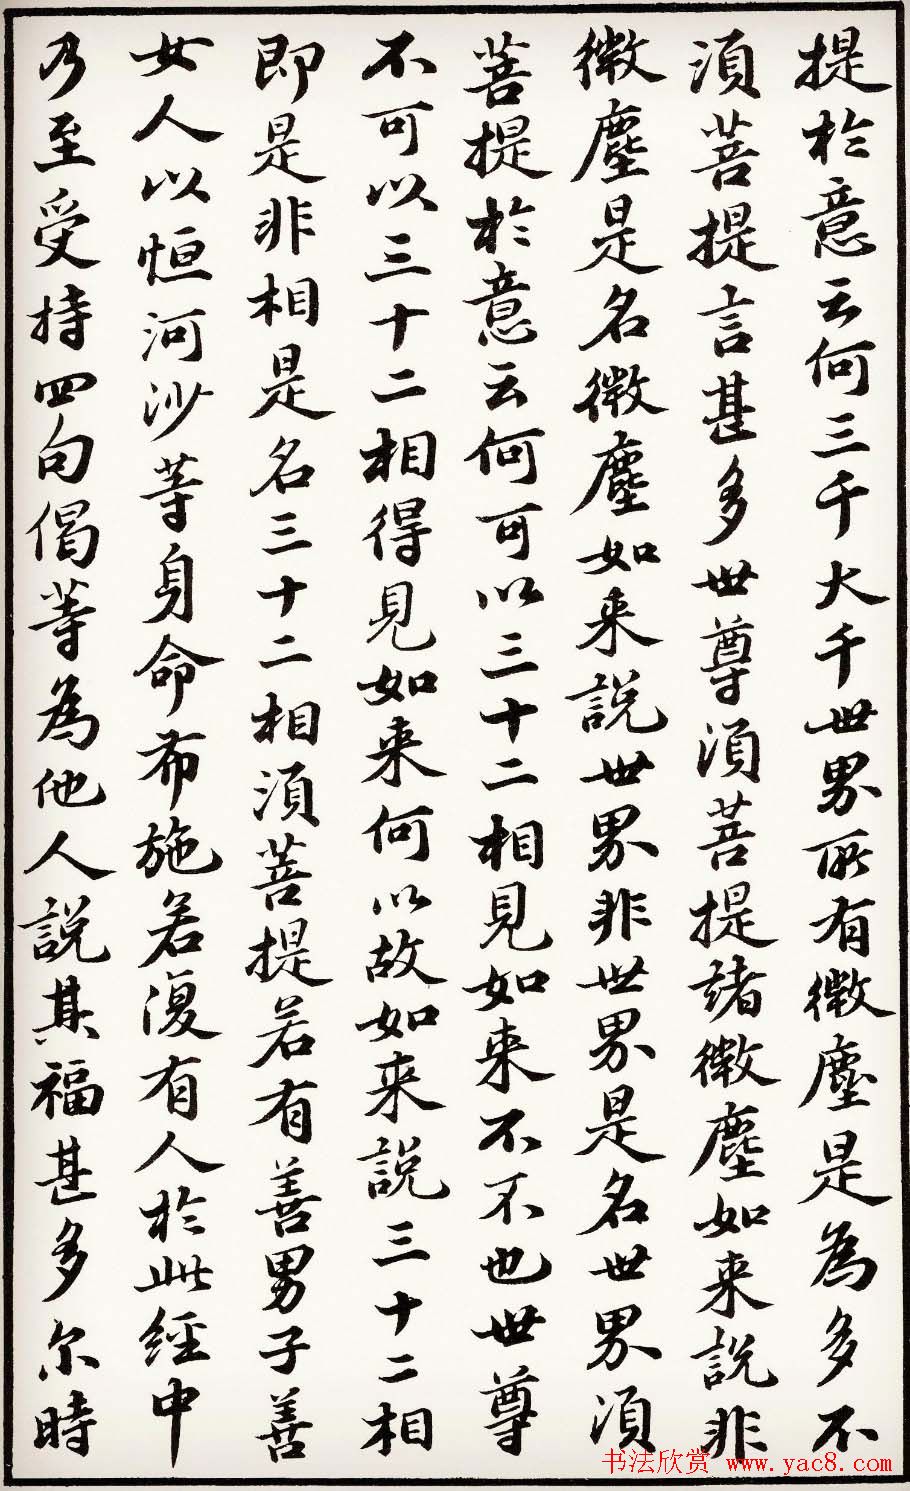 提於意云何三千大千世界所有微塵是為多不
須菩提言甚多世尊須菩提諸微塵如来說非
微塵是名微塵如来說世界非世界是名世界須
菩提於意云何可以三十二相見如来不不也世尊
不可以三十二相得見如来何以故如来說三十二相
即是非相是名三十二相須菩提若有善男子善
女人以恒河沙等身命布施若復有人於此經中
乃至受持四句偈等為他人說其福甚多尔時
书法欣赏 www.yac8.com